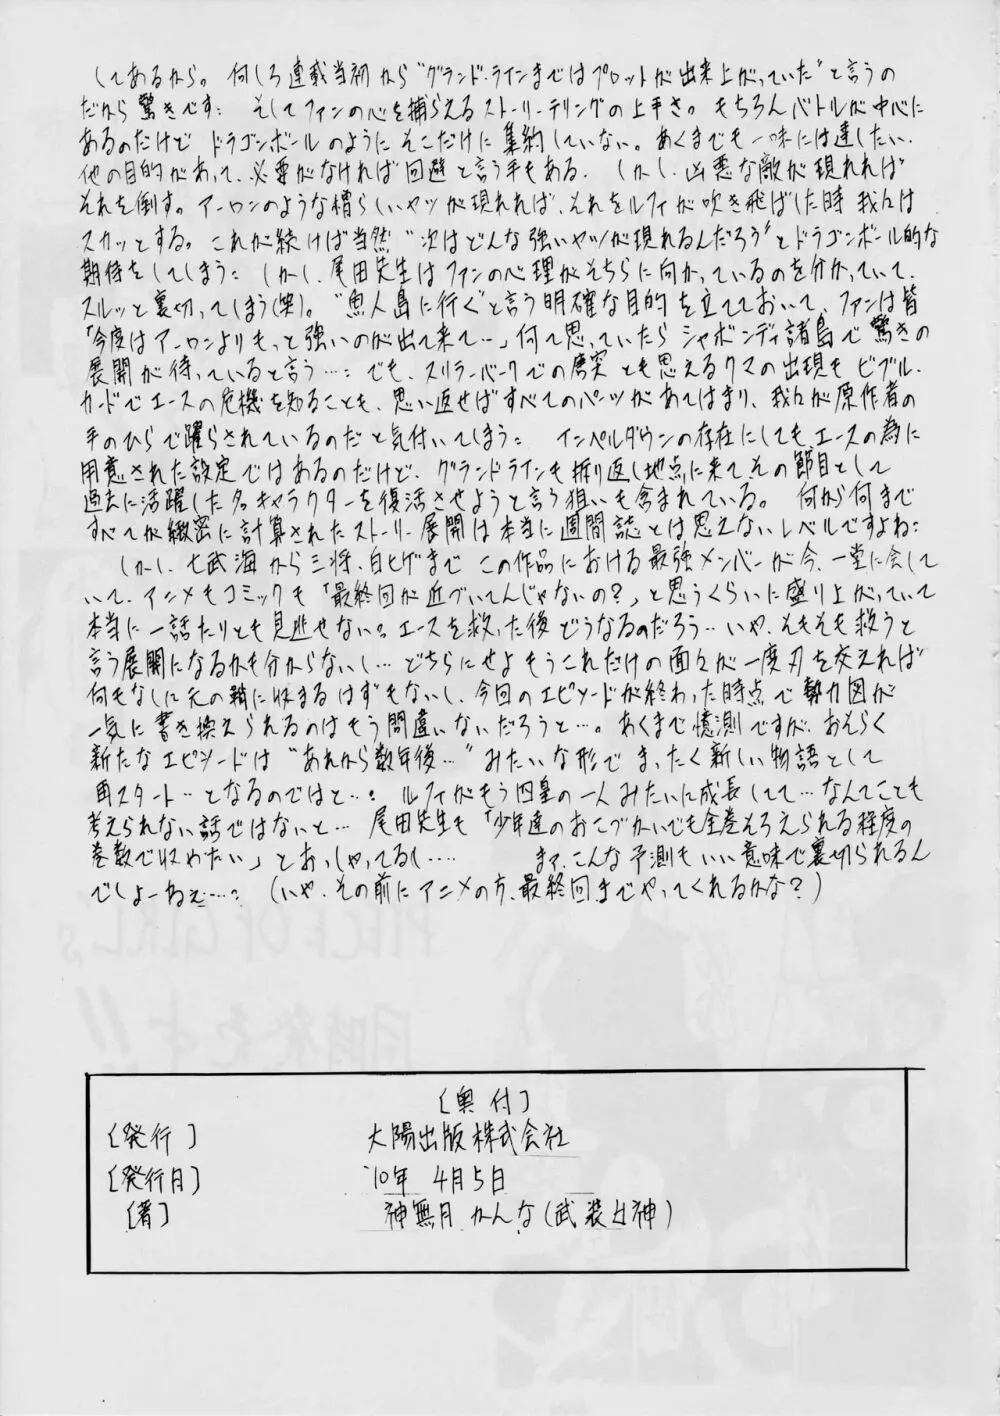 してあるから。何しろ連載当初から“グランド・ラインまではプロットが出来上がっていた”と言うの
だから驚きです: そしてファンの心を捕らえるストーリーテリングの上手さ。もちろんバトルが中心に
あるのだけど ドラゴンボールのように そこだけに集約していない。あくまでも一味には達したい、
他の目的があって、必要がなければ回避と言う手もある. しかし、凶悪な敵が現れれば
それを倒す。アーロンのような憎らしいヤツが現れれば、それをルフィが吹き飛ばした時 我々は
スカッとする。これが続けば当然“次はどんな強いヤツが現れるんだろう”とドラゴンボール的な
期待をしてしまう: しかし、尾田先生はファンの心理がそちらに向かっているのを分かっていて、
スルッと裏切ってしまう(笑)。“魚人島に行く”と言う明確な目的を立てておいて、ファンは皆
「今度はアーロンよりもっと強いのが出て来て…」何て思っていたら シャボンディ諸島で驚きの
展開が待っていると言う…: でも、スリラーバークでの唐突とも思えるクマの出現も ビブル・
カードでエースの危機を知ることも、思い返せばすべてのパーツがあてはまり、我々が原作者の
手のひらで躍らされているのだと気付いてしまう: インペルダウンの存在にしても、エースの為に
用意された設定ではあるのだけど、グランドラインも折り返し地点に来てその節目として
過去に活躍した名キャラクターを復活させようと言う狙いも含まれている。 何から何まで
すべてが緻密に計算されたストーリー展開は本当に週間誌とは思えないレベルですよね:
しかし、七武海から三将、白ヒゲまで この作品における最強メンバーが今、一堂に会して
いて、アニメもコミックも「最終回が近づいてんじゃないの?」と思うくらいに盛り上がっていて
本当に一話たりとも見逃せない。エースを救った後どうなるのだろう‥いや、そもそも救うと
言う展開になるかも分からないし… どちらにせよ もうこれだけの面々が一度刃を交えれば
何もなしに元の鞘に収まるはずもないし、今回のエピソードが終わった時点で勢力図が
一気に書き換えられるのはもう間違いないだろうと…。あくまで憶測ですが、おそらく
新たなエピソードは“あれから数年後…”みたいな形でまったく新しい物語として
再スタート…となるのではと…: ルフィがもう四皇の一人みたいに成長してて…なんてことも
考えられない話ではないと… 尾田先生も「少年達のおこづかいでも全巻そろえられる程度の
巻数で収めたい」とおっしゃってるし…. まァ、こんな予測もいい意味で裏切られるん
でしょーねェ…: (いや、その前にアニメの方、最終回までやってくれるかな?)
PIECE OF GIRLs
同時発売です!!
[奥付]
[発行] 大陽出版株式会社
[発行日] '10年 4月5日
[著] 神無月かんな(武装女神)